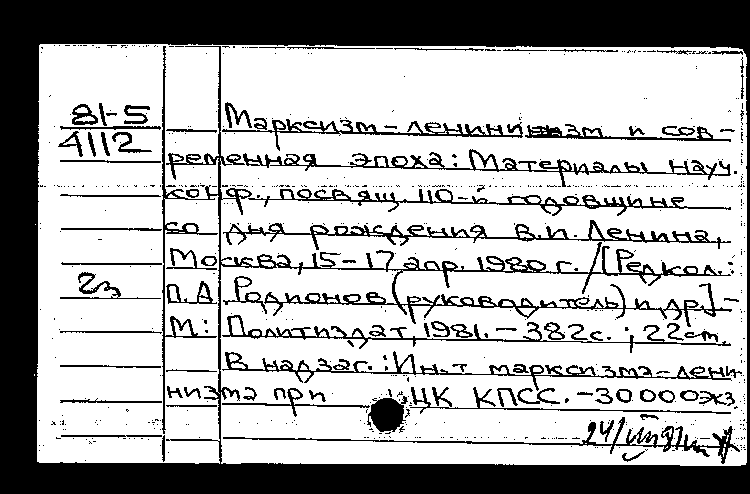 81-5
4112
Марксизм-ленинизм и сов-
ременная эпоха: Материалы науч.
конф., посвящ. 110-й годовщине
со дня рождения В.И. Ленина,
Москва, 15-17 апр. 1980 г. / [Редкол.:
П.А. Родионов (руководитель) и др.]-
М.: Политиздат, 1981. - 382с. ; 22см.
В надзаг.: Ин-т марксизма-лени
низма при ЦК КПСС. - 30000экз